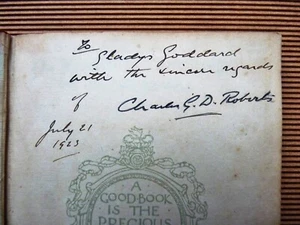 To
Gladys Goddard
with the sincere regards
of Charles G. D. Roberts
July 21
1923
A
GOOD BOOK
IS THE
PRECIOUS